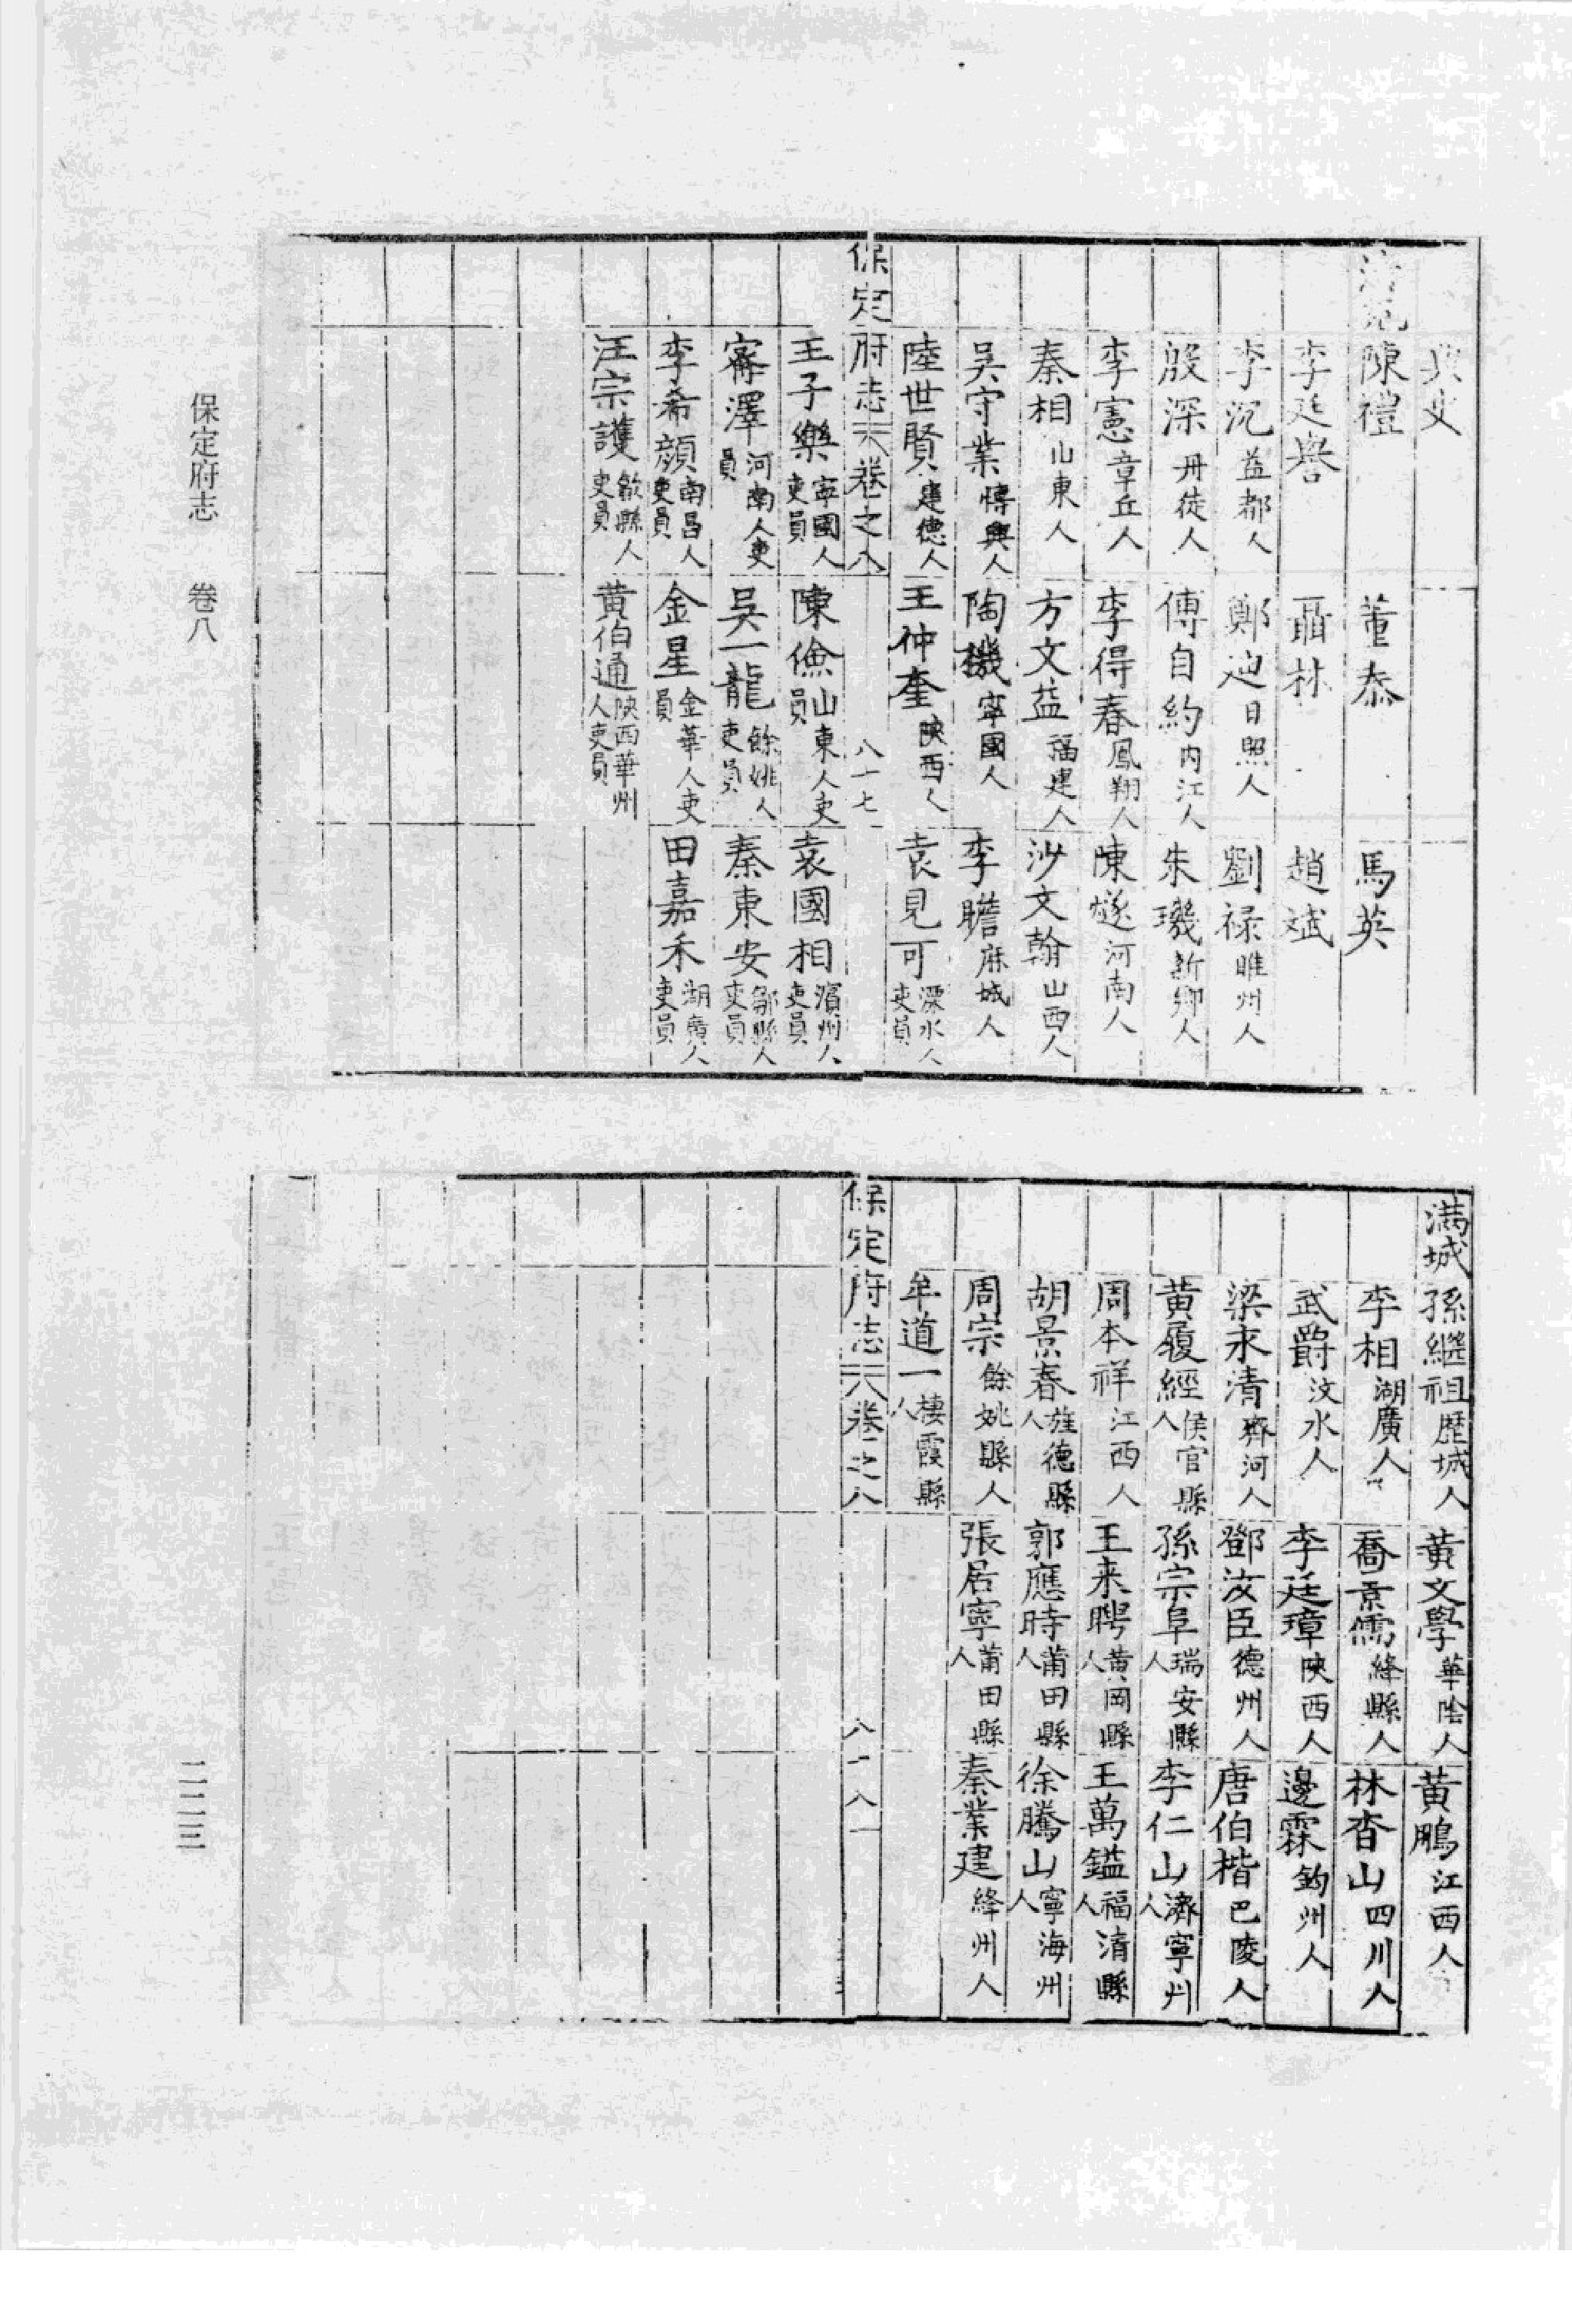 典史
清苑 陳禮 董泰 馬英
李廷譽 聶林 趙斌
李沉 益都人 鄭迪 日照人 劉禄 睢州人
殷深 丹徒人 傅自約 内江人 朱璣 新鄉人
李憲 章丘人 李得春 鳳翔人 陳燧 河南人
秦相 山東人 方文益 福建人 沙文翰 山西人
吳守業 博興人 陶機 寧國人 李瞻 麻城人
陸世賢 建德人 王仲奎 陝西人 袁見可 溧水人吏員
保定府志 卷之八 八十七
王子樂 寧國人吏員 陳儉 山東人吏員 袁國相 濱州人吏員
寗澤 河南人吏員 吳一龍 餘姚人吏員 秦東安 鄒縣人吏員
李希顔 南昌人吏員 金星 金華人吏員 田嘉禾 湖廣人吏員
汪宗護 歙縣人吏員 黄伯通 陝西華州人吏員
滿城 孫繼祖 歷城人 黄文學 華陰人 黄鵬 江西人
李相 湖廣人 喬景儒 絳縣人 林杳山 四川人
武爵 汶水人 李廷璋 陝西人 邊霖 鈞州人
梁永清 齊河人 鄧汝臣 德州人 唐伯楷 巴陵人
黄履經 侯官縣人 孫宗阜 瑞安縣人 李仁山 濟寧州人
周本祥 江西人 王来聘 黄岡縣人 王萬鎰 福清縣人
胡景春 旌德縣人 郭應時 莆田縣人 徐騰山 寧海州人
周宗 餘姚縣人 張居寧 莆田縣人 秦業建 絳州人
牟道一 棲霞縣人
保定府志 卷之八 八十八
保定府志 卷八
二二三